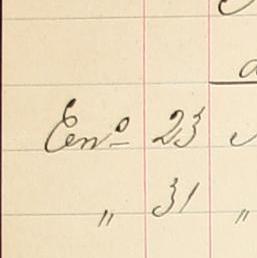 Enº 23
" 31 "